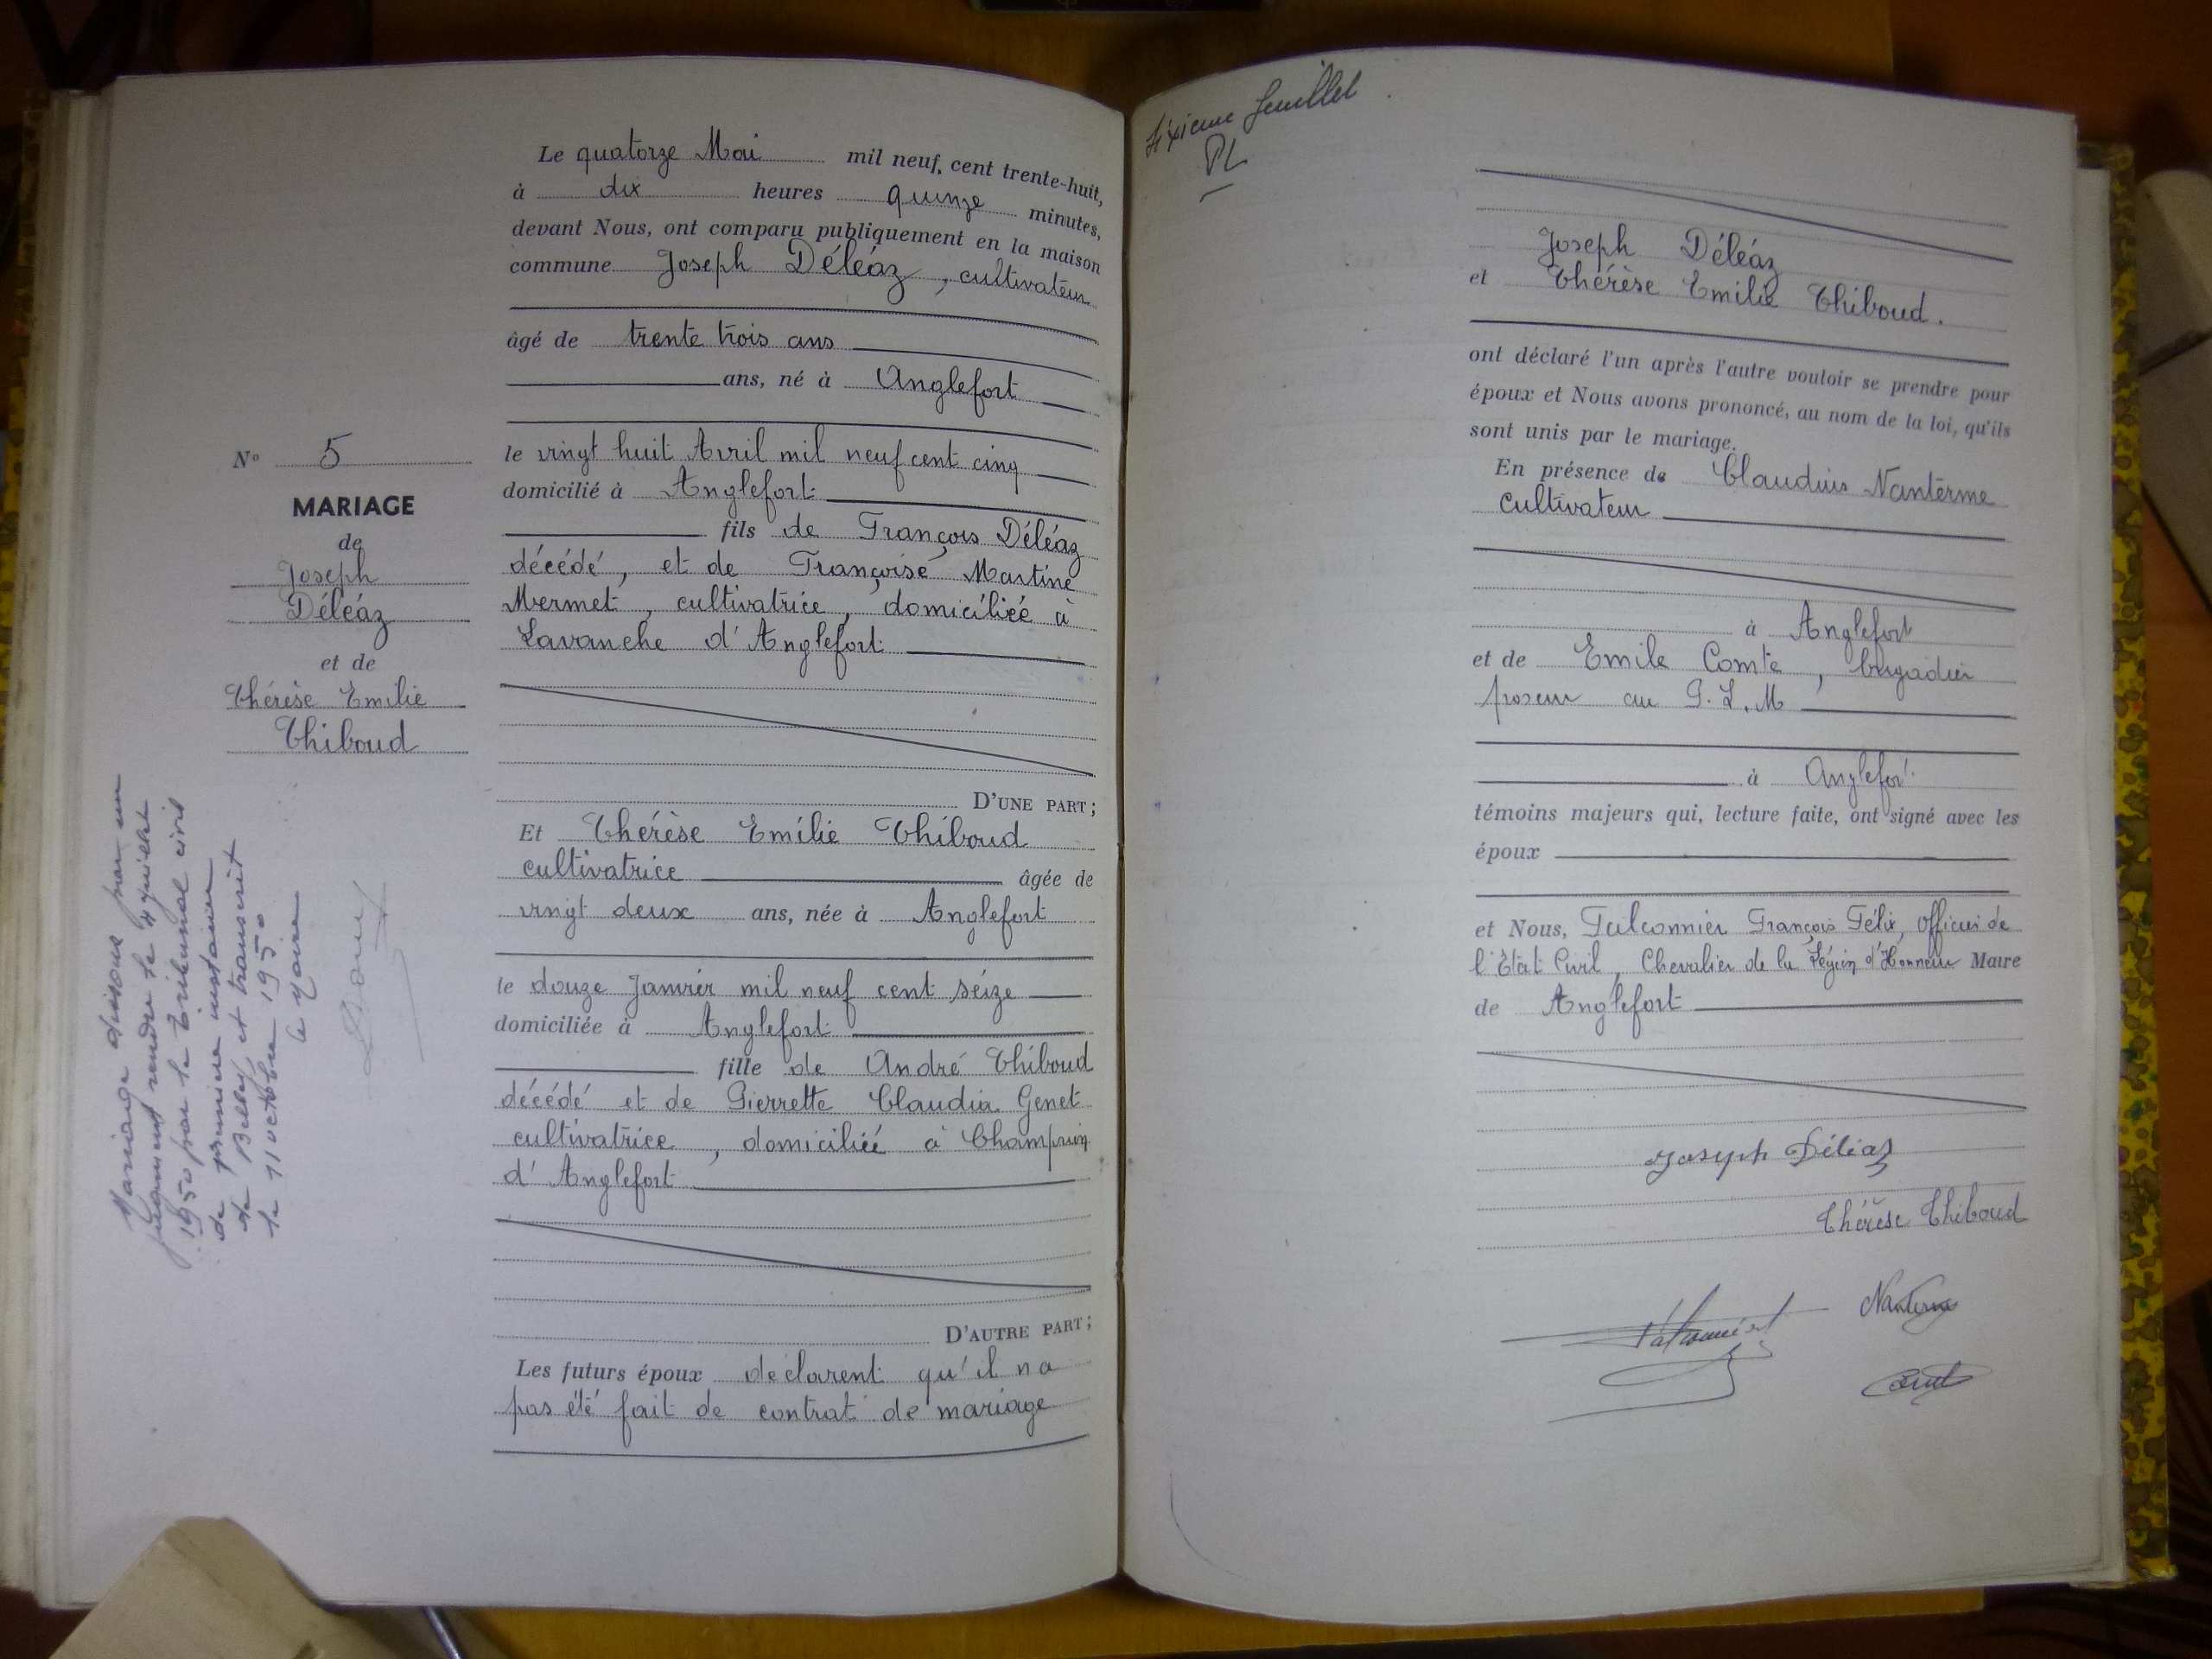 Le quatorze Mai mil neuf cent trente-huit,
à dix heures quinze minutes,
devant Nous, ont comparu publiquement en la maison
commune Joseph Déléaz, cultivateur
âgé de trente trois ans
ans, né à Anglefort
le vingt huit Avril mil neuf cent cinq
domicilié à Anglefort
fils de François Déléaz
décédé, et de Françoise Martine
Mermet, cultivatrice, domiciliée à
Lavanche d'Anglefort
D'UNE PART;
Et Thérèse Emilie Thiboud
cultivatrice âgée de
vingt deux ans, née à Anglefort
le douze Janvier mil neuf cent seize
domiciliée à Anglefort
fille de André Thiboud
décédé et de Pierrette Claudia Genet
cultivatrice, domiciliée à
d'Anglefort
D'AUTRE PART;
Les futurs époux déclarent qu'il n a
pas été fait de contrat de mariage
No 5
MARIAGE
de
Joseph
Déléaz
et de
Thérèse Emilie
Thiboud
Mariage dissous par un
jugement rendu le 4 Juillet
1950 par le Tribunal civil
de première instance
de Belley et transcrit
le 11 octobre 1950
le Maire
Sixième feuillet
Joseph Déléaz
et Thérèse Emilie Thiboud.
ont déclaré l'un après l'autre vouloir se prendre pour
époux et Nous avons prononcé, au nom de la loi, qu'ils
sont unis par le mariage.
En présence de Claudius Nanterme
cultivateur
à Anglefort
et de Emile Comte, brigadier
poseur au P.L.M
à Anglefort
témoins majeurs qui, lecture faite, ont signé avec les
époux
et Nous, Falconnier François Félix, Officier de
l'Etat Civil, Chevalier de la Légion d'Honneur Maire
de Anglefort
Joseph Déléaz
Thérèse Thiboud